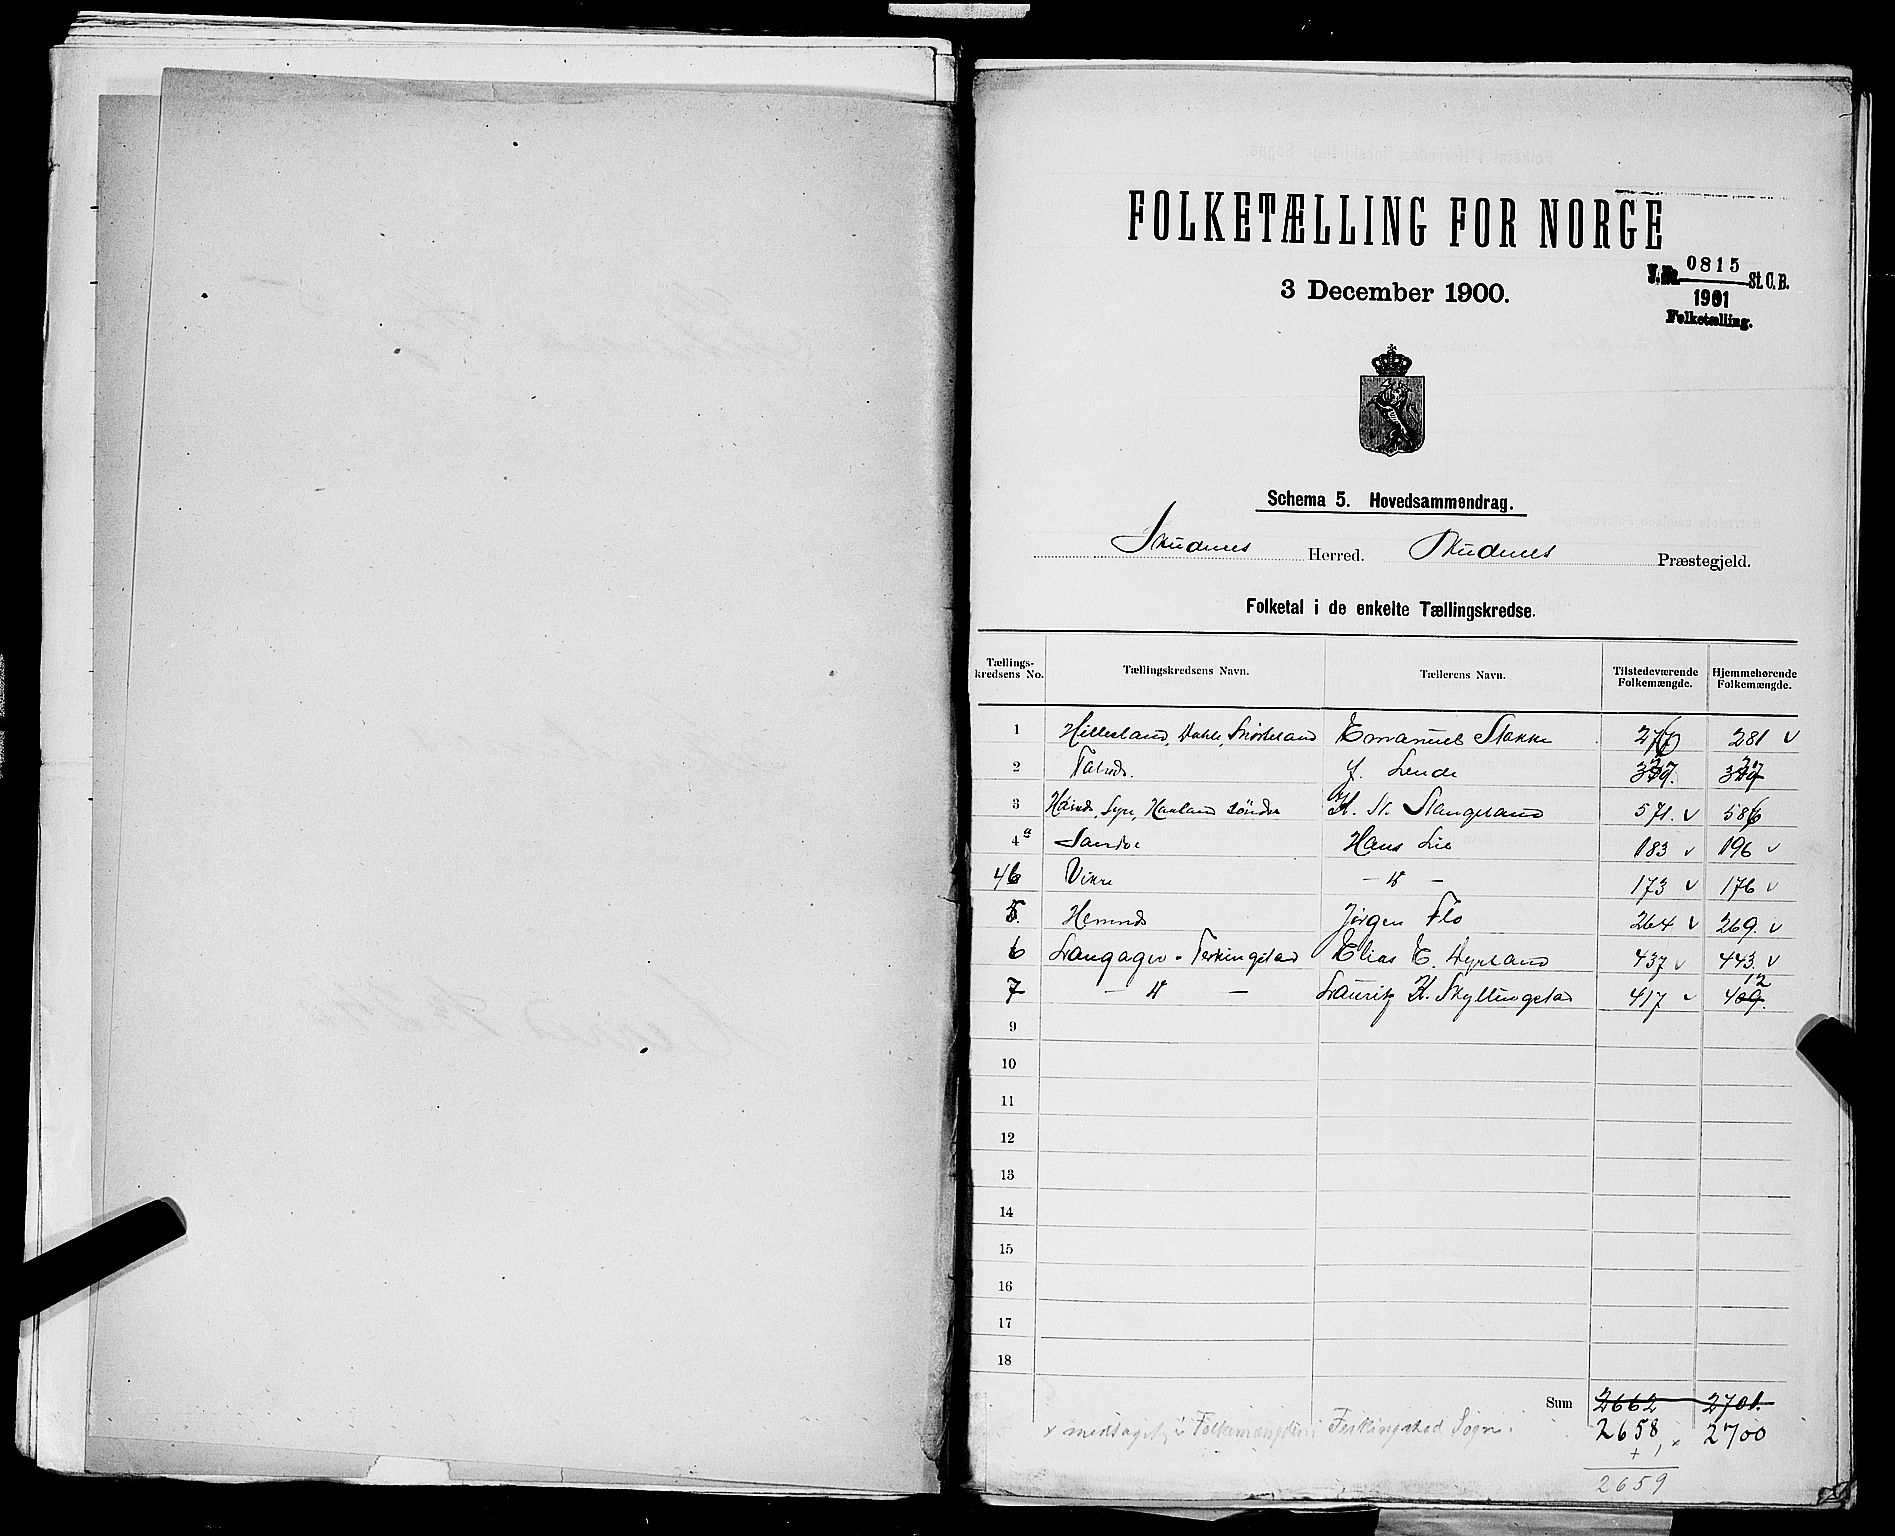 FOLKETÆLLING FOR NORGE
3 December 1900.
J. No. 0815 St. C. B.
1901
Folketælling.
Schema 5. Hovedsammendrag.
Skudenes Herred. Skudenes Præstegjeld.
Folketal i de enkelte Tællingskredse.
Tællings-kredsens No. Tællingskredsens Navn. Tællerens Navn. Tilstedeværende Folkemængde. Hjemmehørende Folkemængde.
1 Hillesland, Dahle, Emanuel Stakke 276 281 v
2 Falnes. J. Lende 337. 337
3 Høines, Syre, Hauland søndre K. St. Stangeland 571. v 586
4a Sandve Hans Lie 183 v 196 v
4b Vikre — " — 173 v 176 v
5. Hemnes Jørgen Flo 264 v 269. v
6 Langager - Ferkingstad Elias E. Dyrland 437 v 443. v
7 — " — Lauritz K. Skyllingstad 417 v 412
9
10
11
12
13
14
15
16
17
18
Sum 2662 2701.
x medtaget i Folkemængden i Ferkingstad Sogn. 2658 2700
+ 1 x
2659